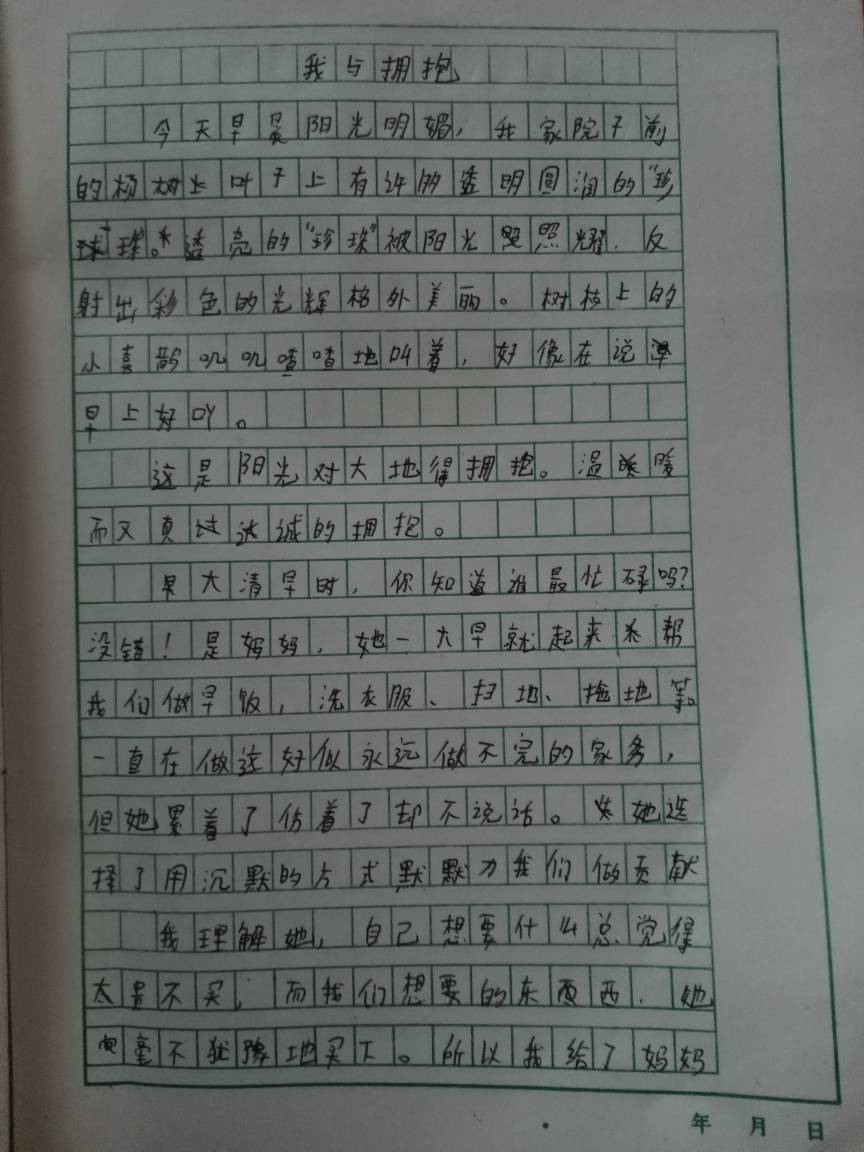 我与拥抱
今天早晨阳光明媚，我家院子前
的杨树上叶子上有许的透明圆润的“珍
珠”。透亮的“珍珠”被阳光照耀，反
射出彩色的光辉格外美丽。树枝上的
小喜鹊叽叽喳喳地叫着，好像在说
早上好吖。
这是阳光对大地得拥抱。温暖
而又真诚的拥抱。
大清早时，你知道谁最忙碌吗？
没错！是妈妈，她一大早就起来帮
我们做早饭，洗衣服、扫地、拖地等
一直在做这好似永远做不完的家务，
但她累着了伤着了却不说话。她选
择了用沉默的方式默默为我们做贡献
我理解她，自己想要什么总觉得
太贵不买，而我们想要的东西，她
毫不犹豫地买下。所以我给了妈妈
年 月 日